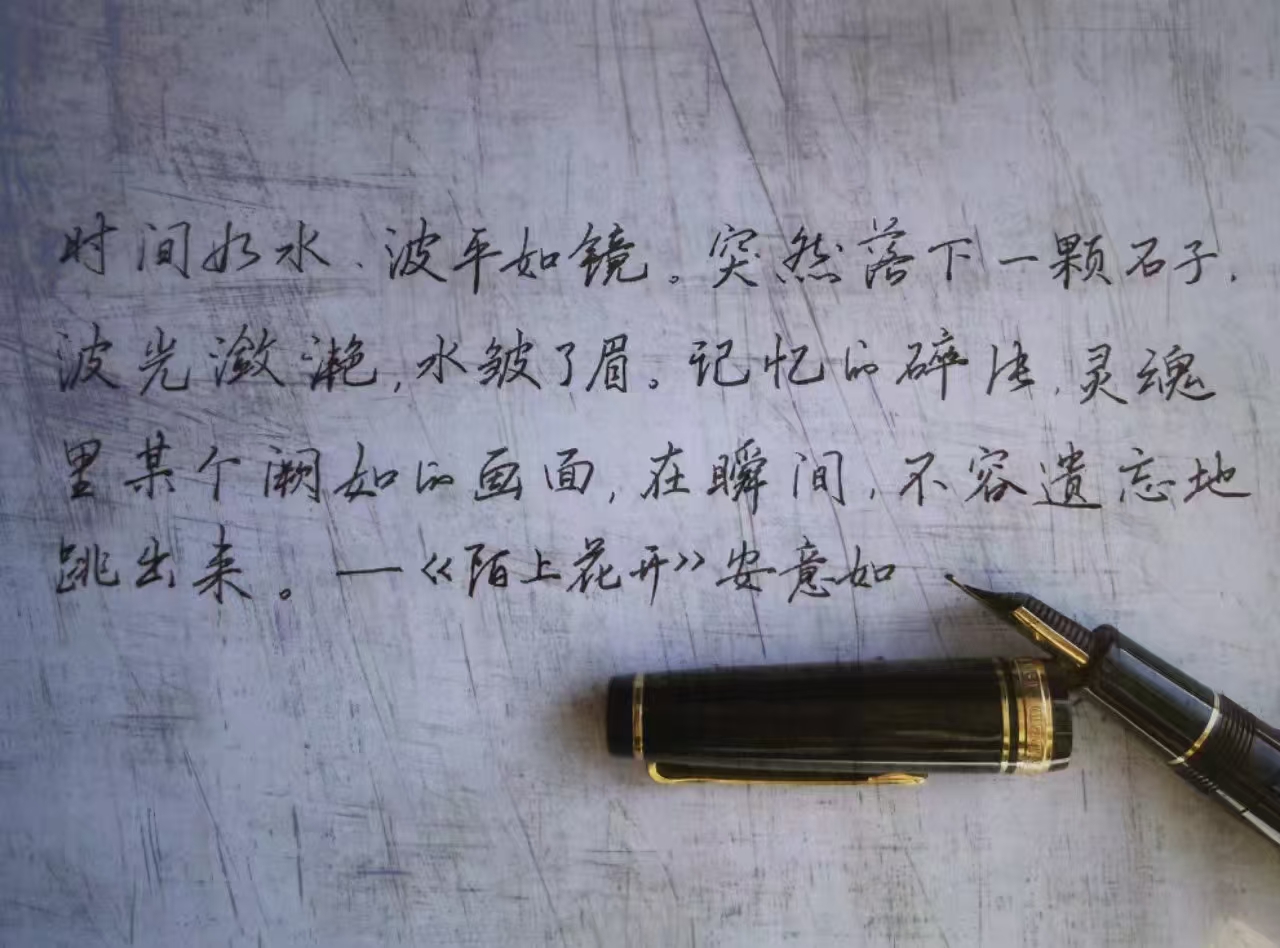 时间如水、波平如镜。突然落下一颗石子,
波光潋滟,水皱了眉。记忆的碎片,灵魂
里某个阙如的画面,在瞬间,不容遗忘地
跳出来。—《陌上花开》安意如